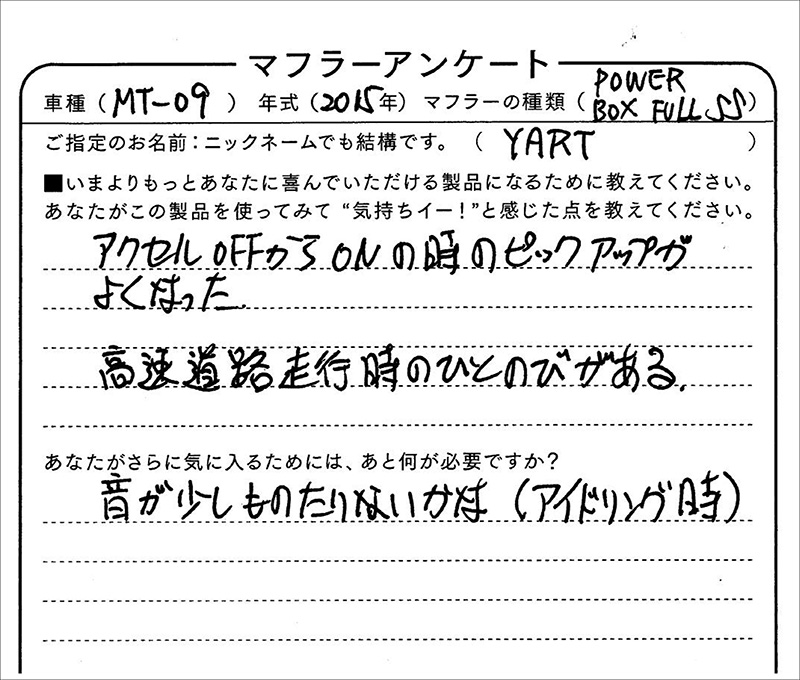 マフラーアンケート
車種（MT-09）年式（2015年）マフラーの種類（POWER BOX FULL SS）
ご指定のお名前：ニックネームでも結構です。（YART）
■いまよりもっとあなたに喜んでいただける製品になるために教えてください。
あなたがこの製品を使ってみて“気持ちイー！”と感じた点を教えてください。
アクセルOFFからONの時のピックアップが
よくなった.
高速道路走行時のひとのびがある.
あなたがさらに気に入るためには、あと何が必要ですか？
音が少しものたりないかな（アイドリング時）